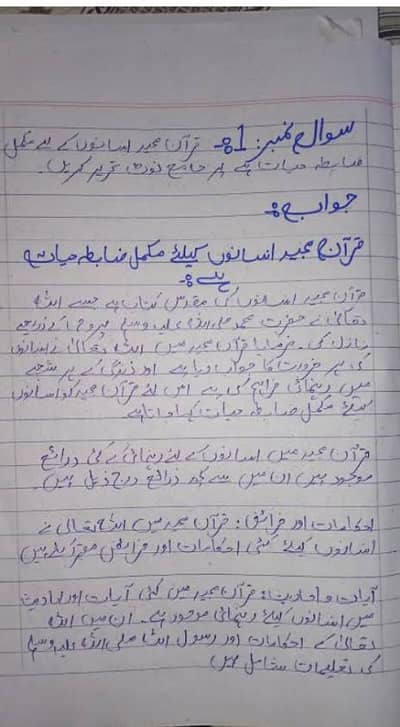 سوال نمبر: 1 :- قرآن مجید انسانوں کے لیے مکمل
ضابطہ حیات ہے پر جامع نوٹ تحریر کریں۔
جواب :-
قرآن مجید انسانوں کیلئے مکمل ضابطہ حیات
ہے :-
قرآن مجید انسانوں کی مقدس کتاب ہے جسے اللہ
تعالیٰ نے حضرت محمد صلی اللہ علیہ وسلم پر وحی کے ذریعہ
نازل کی۔ قرآن مجید میں اللہ تعالیٰ نے انسانوں
کی ہر ضرورت کا جواب دیا ہے اور زندگی کے ہر شعبے
میں رہنمائی فراہم کی ہے اس لئے قرآن مجید کو انسانوں
کیلئے مکمل ضابطہ حیات کہا جاتا ہے
قرآن مجید میں انسانوں کے لئے رہنمائی کے کئی ذرائع
موجود ہیں ان میں سے کچھ ذرائع درج ذیل ہیں۔
احکامات اور فرائض: قرآن مجید میں اللہ تعالیٰ نے
انسانوں کیلئے کئی احکامات اور فرائض مقرر کیے ہیں
آیات و احادیث: قرآن مجید میں کئی آیات اور احادیث
میں انسانوں کیلئے رہنمائی موجود ہے۔ ان میں اللہ
تعالیٰ کے احکامات اور رسول اللہ صلی اللہ علیہ وسلم
کی تعلیمات شامل ہیں